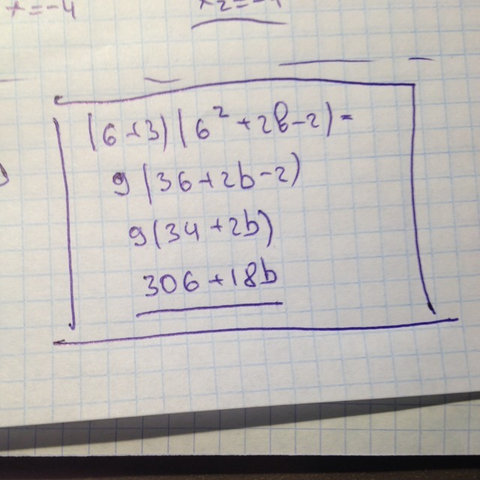 x=-4
x2=-1
(6+3)(6²+2b-2)=
9(36+2b-2)
9(34+2b)
306+18b